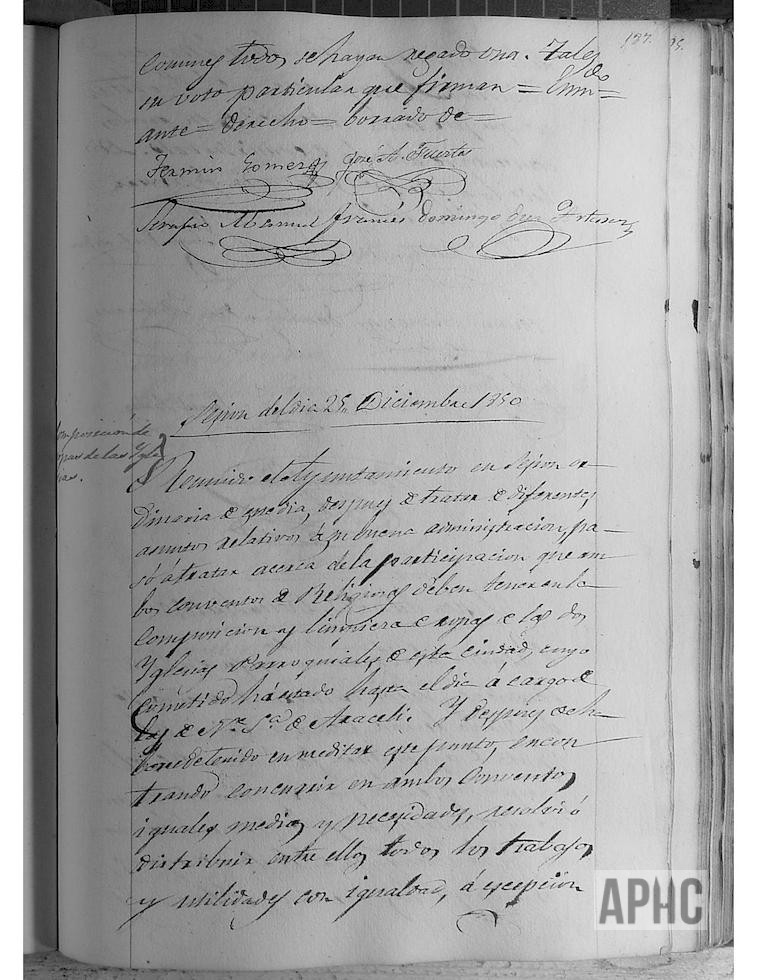 137. 35.
comunes todos se hayan negado una. Tal es
su voto particular que firman = Enm =
do
ante = derecho = borrado de =
Fermin Gomez José A. Huerta
Serapio Manuel Francés Domingo Diaz
Sesion del dia 25 Diciembre 1850
composicion de
ropas de las Ygle
sias.
Reunido el Ayuntamiento en sesion or-
dinaria de que dia, despues de tratar de diferentes
asuntos relativos á su buena administracion, pa-
só á tratar acerca de la participacion que am-
bos conventos de Religiosas deben tener en la
composicion y limpieza de ropas de las dos
Yglesias Parroquiales de esta ciudad, cuyo
cometido há estado hasta el dia á cargo de
las de Nra. Sa. de Araceli. Y despues de ha-
berse detenido en meditar este punto, encon
trando concurrir en ambos conventos
iguales medios y necesidades, resolvió
distribuir entre ellos todos los trabajos
y utilidades con igualdad, á escepcion
APHC